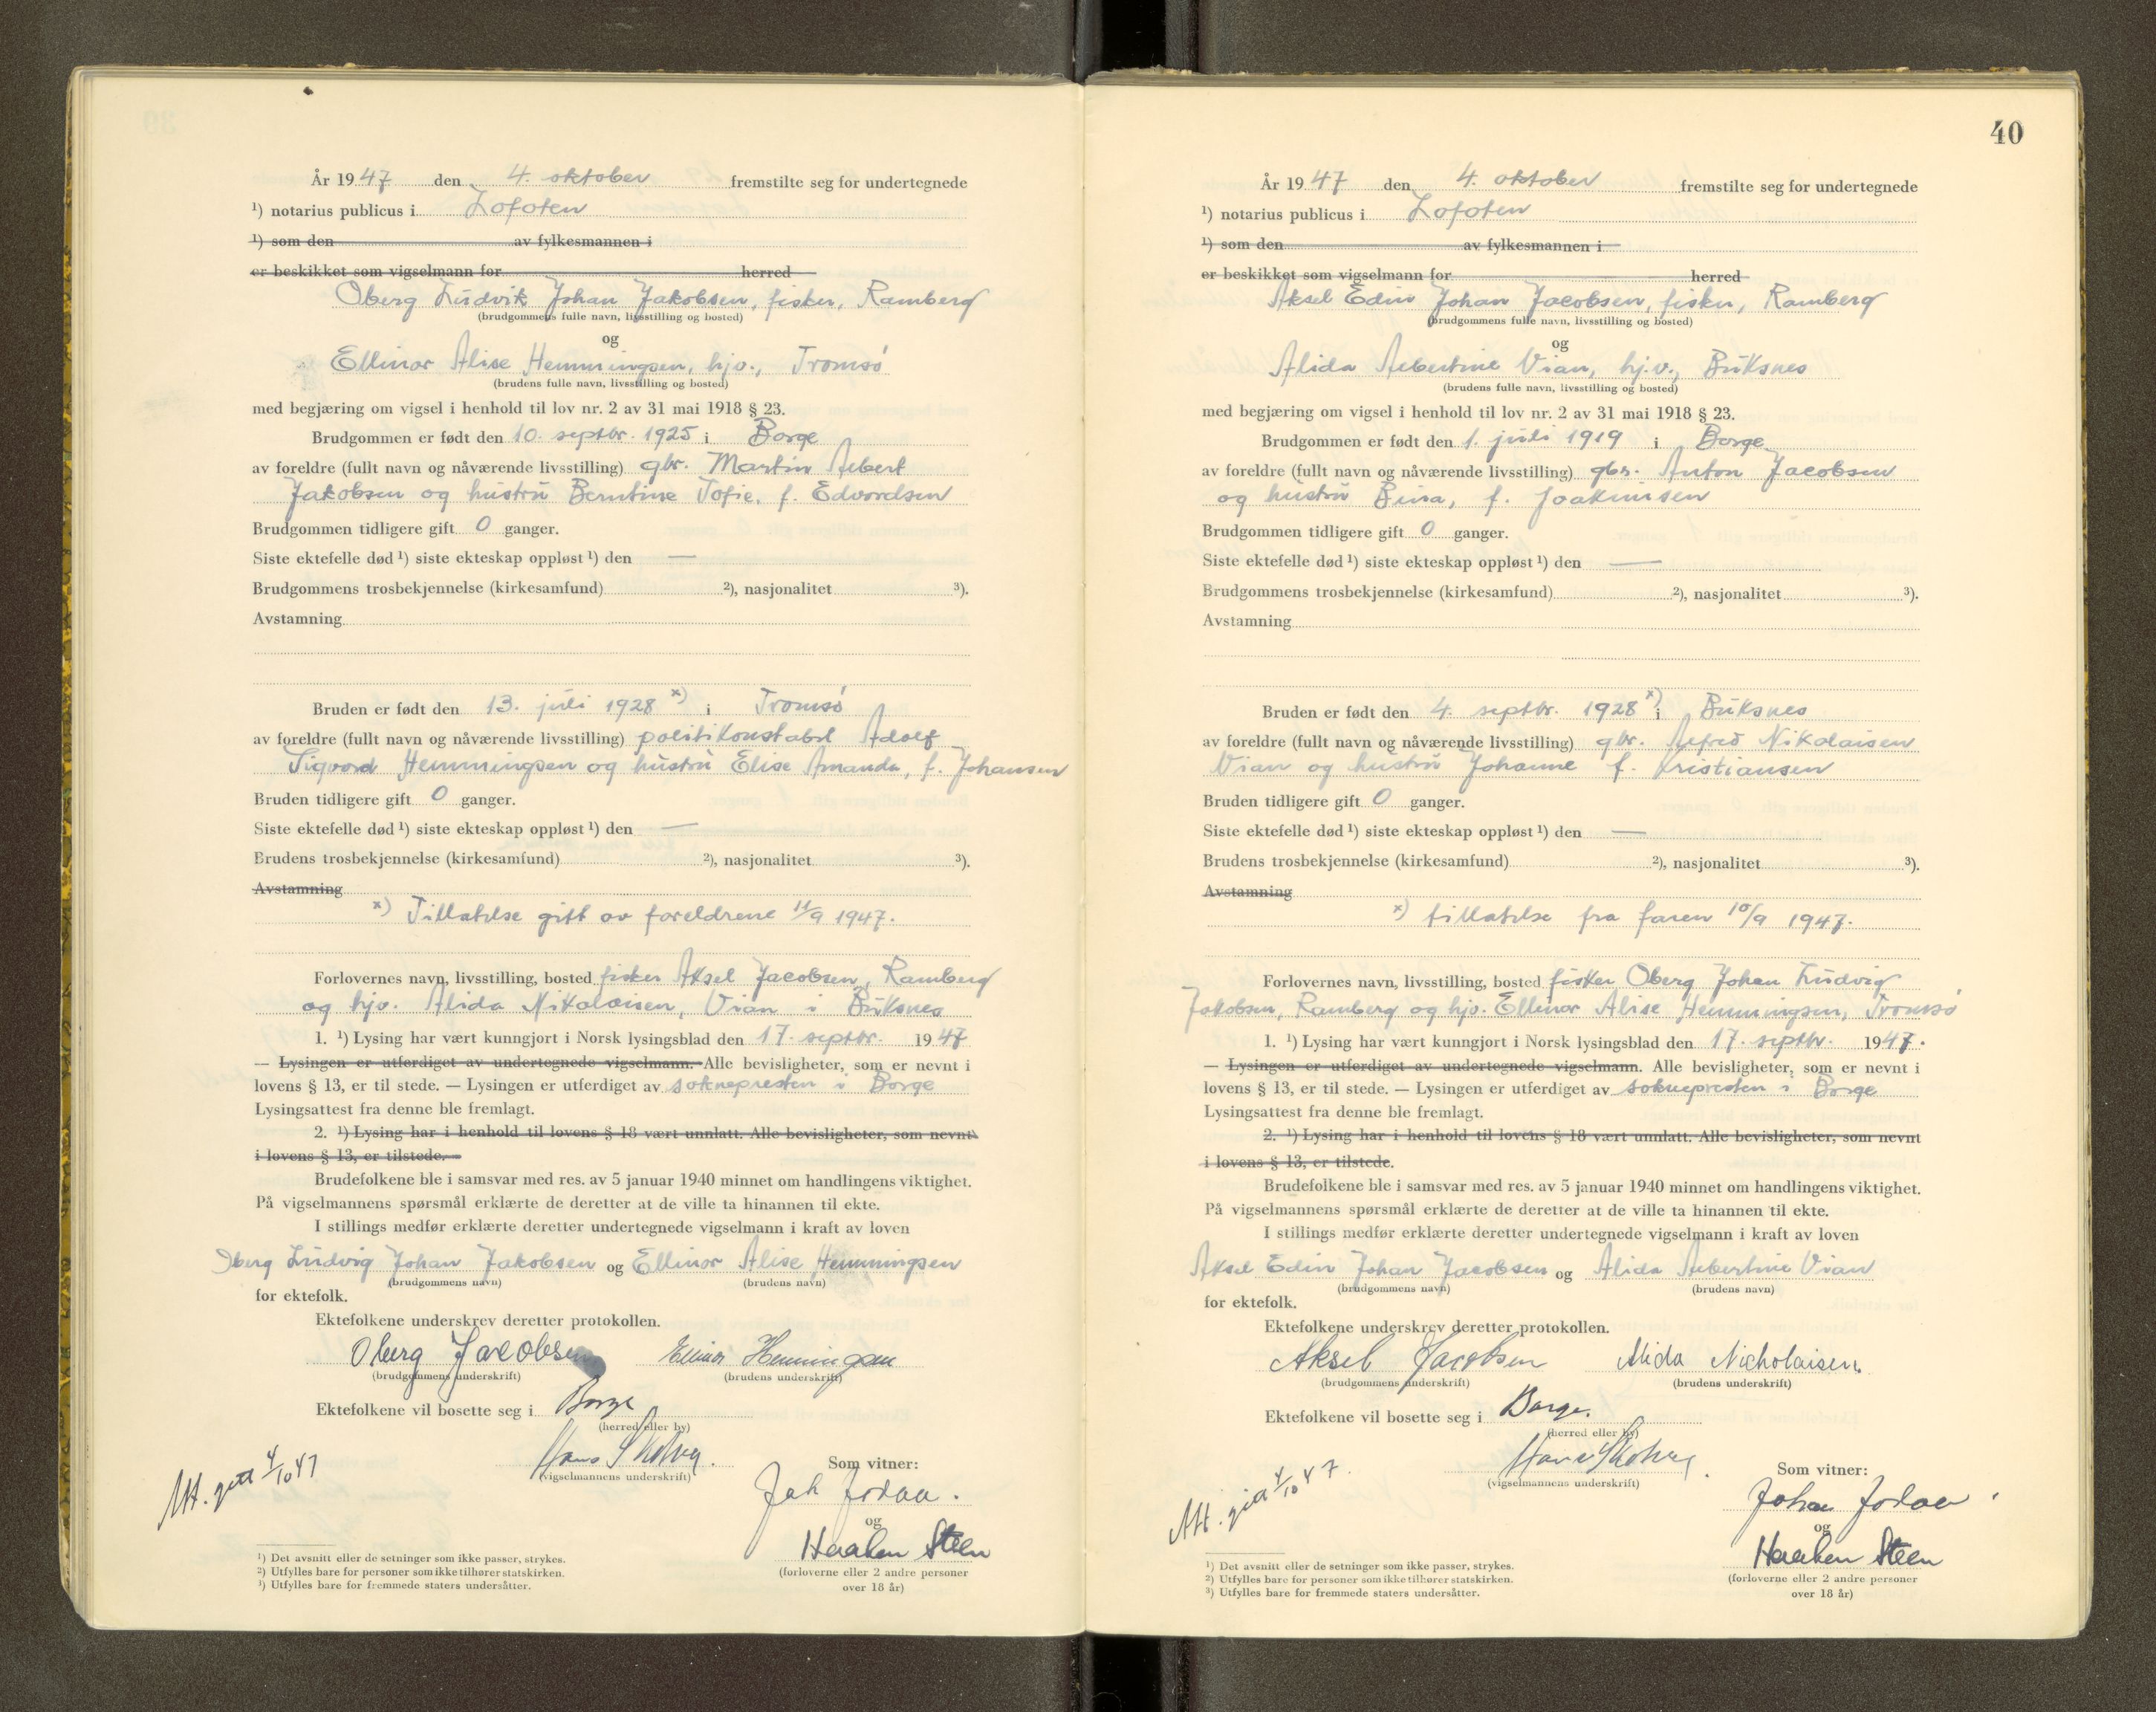 År 1947 den 4. oktober fremstilte seg for undertegnede
¹) notarius publicus i Lofoten
¹) som den av fylkesmannen i
er beskikket som vigselmann for herred
Oberg Ludvik Johan Jakobsen, fisker, Ramberg
(brudgommens fulle navn, livsstilling og bosted)
og
Ellinor Alise Hemmingsen, hjv., Tromsö
(brudens fulle navn, livsstilling og bosted)
med begjæring om vigsel i henhold til lov nr. 2 av 31 mai 1918 § 23.
Brudgommen er født den 10. septbr. 1925 i Borge
av foreldre (fullt navn og nåværende livsstilling) gbr. Martin Albert
Jakobsen og hustru Berntine Tofie, f. Edvardsen
Brudgommen tidligere gift 0 ganger.
Siste ektefelle død ¹) siste ekteskap oppløst ¹) den —
Brudgommens trosbekjennelse (kirkesamfund) ²), nasjonalitet ³).
Avstamning
Bruden er født den 13. juli 1928 x) i Tromsö
av foreldre (fullt navn og nåværende livsstilling) politikonstabel Adolf
Sigvard Hemmingsen og hustru Elise Amanda, f. Johansen
Bruden tidligere gift 0 ganger.
Siste ektefelle død ¹) siste ekteskap oppløst ¹) den —
Brudens trosbekjennelse (kirkesamfund) ²), nasjonalitet ³).
Avstamning
x) Tillatelse gitt av foreldrene 11/9 1947.
Forlovernes navn, livsstilling, bosted fisker Aksel Jacobsen, Ramberg
og hjv. Alida Nikolaisen, Vian i Buksnes
1. ¹) Lysing har vært kunngjort i Norsk lysingsblad den 17. septbr. 1947
— Lysingen er utferdiget av undertegnede vigselmann. Alle bevisligheter, som er nevnt i
lovens § 13, er til stede. — Lysingen er utferdiget av soknepresten i Borge
Lysingsattest fra denne ble fremlagt.
2. ¹) Lysing har i henhold til lovens § 18 vært unnlatt. Alle bevisligheter, som nevnt
i lovens § 13, er tilstede.
Brudefolkene ble i samsvar med res. av 5 januar 1940 minnet om handlingens viktighet.
På vigselmannens spørsmål erklærte de deretter at de ville ta hinannen til ekte.
I stillings medfør erklærte deretter undertegnede vigselmann i kraft av loven
Oberg Ludvig Johan Jakobsen og Ellinor Alise Hemmingsen
(brudgommens navn) (brudens navn)
for ektefolk.
Ektefolkene underskrev deretter protokollen.
Oberg Jacobsen Ellinor Hemmingsen
(brudgommens underskrift) (brudens underskrift)
Ektefolkene vil bosette seg i Borge
(herred eller by)
Hans
(vigselmannens underskrift)
Att. gitt 4/10 47
Som vitner:
Joh Jodaa.
og
Haaken Steen
(forloverne eller 2 andre personer
over 18 år)
¹) Det avsnitt eller de setninger som ikke passer, strykes.
²) Utfylles bare for personer som ikke tilhører statskirken.
³) Utfylles bare for fremmede staters undersåtter.
40
År 1947 den 4. oktober fremstilte seg for undertegnede
¹) notarius publicus i Lofoten
¹) som den av fylkesmannen i
er beskikket som vigselmann for herred
Aksel Edin Johan Jacobsen, fisker, Ramberg
(brudgommens fulle navn, livsstilling og bosted)
og
Alida Albertine Vian, hj.v., Buksnes
(brudens fulle navn, livsstilling og bosted)
med begjæring om vigsel i henhold til lov nr. 2 av 31 mai 1918 § 23.
Brudgommen er født den 1. juli 1919 i Borge
av foreldre (fullt navn og nåværende livsstilling) gbr. Anton Jacobsen
og hustru Bina, f. Joakimsen
Brudgommen tidligere gift 0 ganger.
Siste ektefelle død ¹) siste ekteskap oppløst ¹) den —
Brudgommens trosbekjennelse (kirkesamfund) ²), nasjonalitet ³).
Avstamning
Bruden er født den 4. septbr. 1928 x) i Buksnes
av foreldre (fullt navn og nåværende livsstilling) gbr. Alfred Nikolaisen
Vian og hustru Johanne f. Kristiansen
Bruden tidligere gift 0 ganger.
Siste ektefelle død ¹) siste ekteskap oppløst ¹) den —
Brudens trosbekjennelse (kirkesamfund) ²), nasjonalitet ³).
Avstamning
x) tillatelse fra faren 10/9 1947.
Forlovernes navn, livsstilling, bosted fisker Oberg Johan Ludvig
Jakobsen, Ramberg og hjv. Ellinor Alise Hemmingsen, Tromsö
1. ¹) Lysing har vært kunngjort i Norsk lysingsblad den 17. septbr. 1947.
— Lysingen er utferdiget av undertegnede vigselmann. Alle bevisligheter, som er nevnt i
lovens § 13, er til stede. — Lysingen er utferdiget av soknepresten i Borge
Lysingsattest fra denne ble fremlagt.
2. ¹) Lysing har i henhold til lovens § 18 vært unnlatt. Alle bevisligheter, som nevnt
i lovens § 13, er tilstede.
Brudefolkene ble i samsvar med res. av 5 januar 1940 minnet om handlingens viktighet.
På vigselmannens spørsmål erklærte de deretter at de ville ta hinannen til ekte.
I stillings medfør erklærte deretter undertegnede vigselmann i kraft av loven
Aksel Edin Johan Jacobsen og Alida Albertine Vian
(brudgommens navn) (brudens navn)
for ektefolk.
Ektefolkene underskrev deretter protokollen.
Aksel Jacobsen Alida Nicholaisen.
(brudgommens underskrift) (brudens underskrift)
Ektefolkene vil bosette seg i Borge.
(herred eller by)
Hans
(vigselmannens underskrift)
Att. gitt 4/10 47.
Som vitner:
Johan Jodaa
og
Haaken Steen
(forloverne eller 2 andre personer
over 18 år)
¹) Det avsnitt eller de setninger som ikke passer, strykes.
²) Utfylles bare for personer som ikke tilhører statskirken.
³) Utfylles bare for fremmede staters undersåtter.